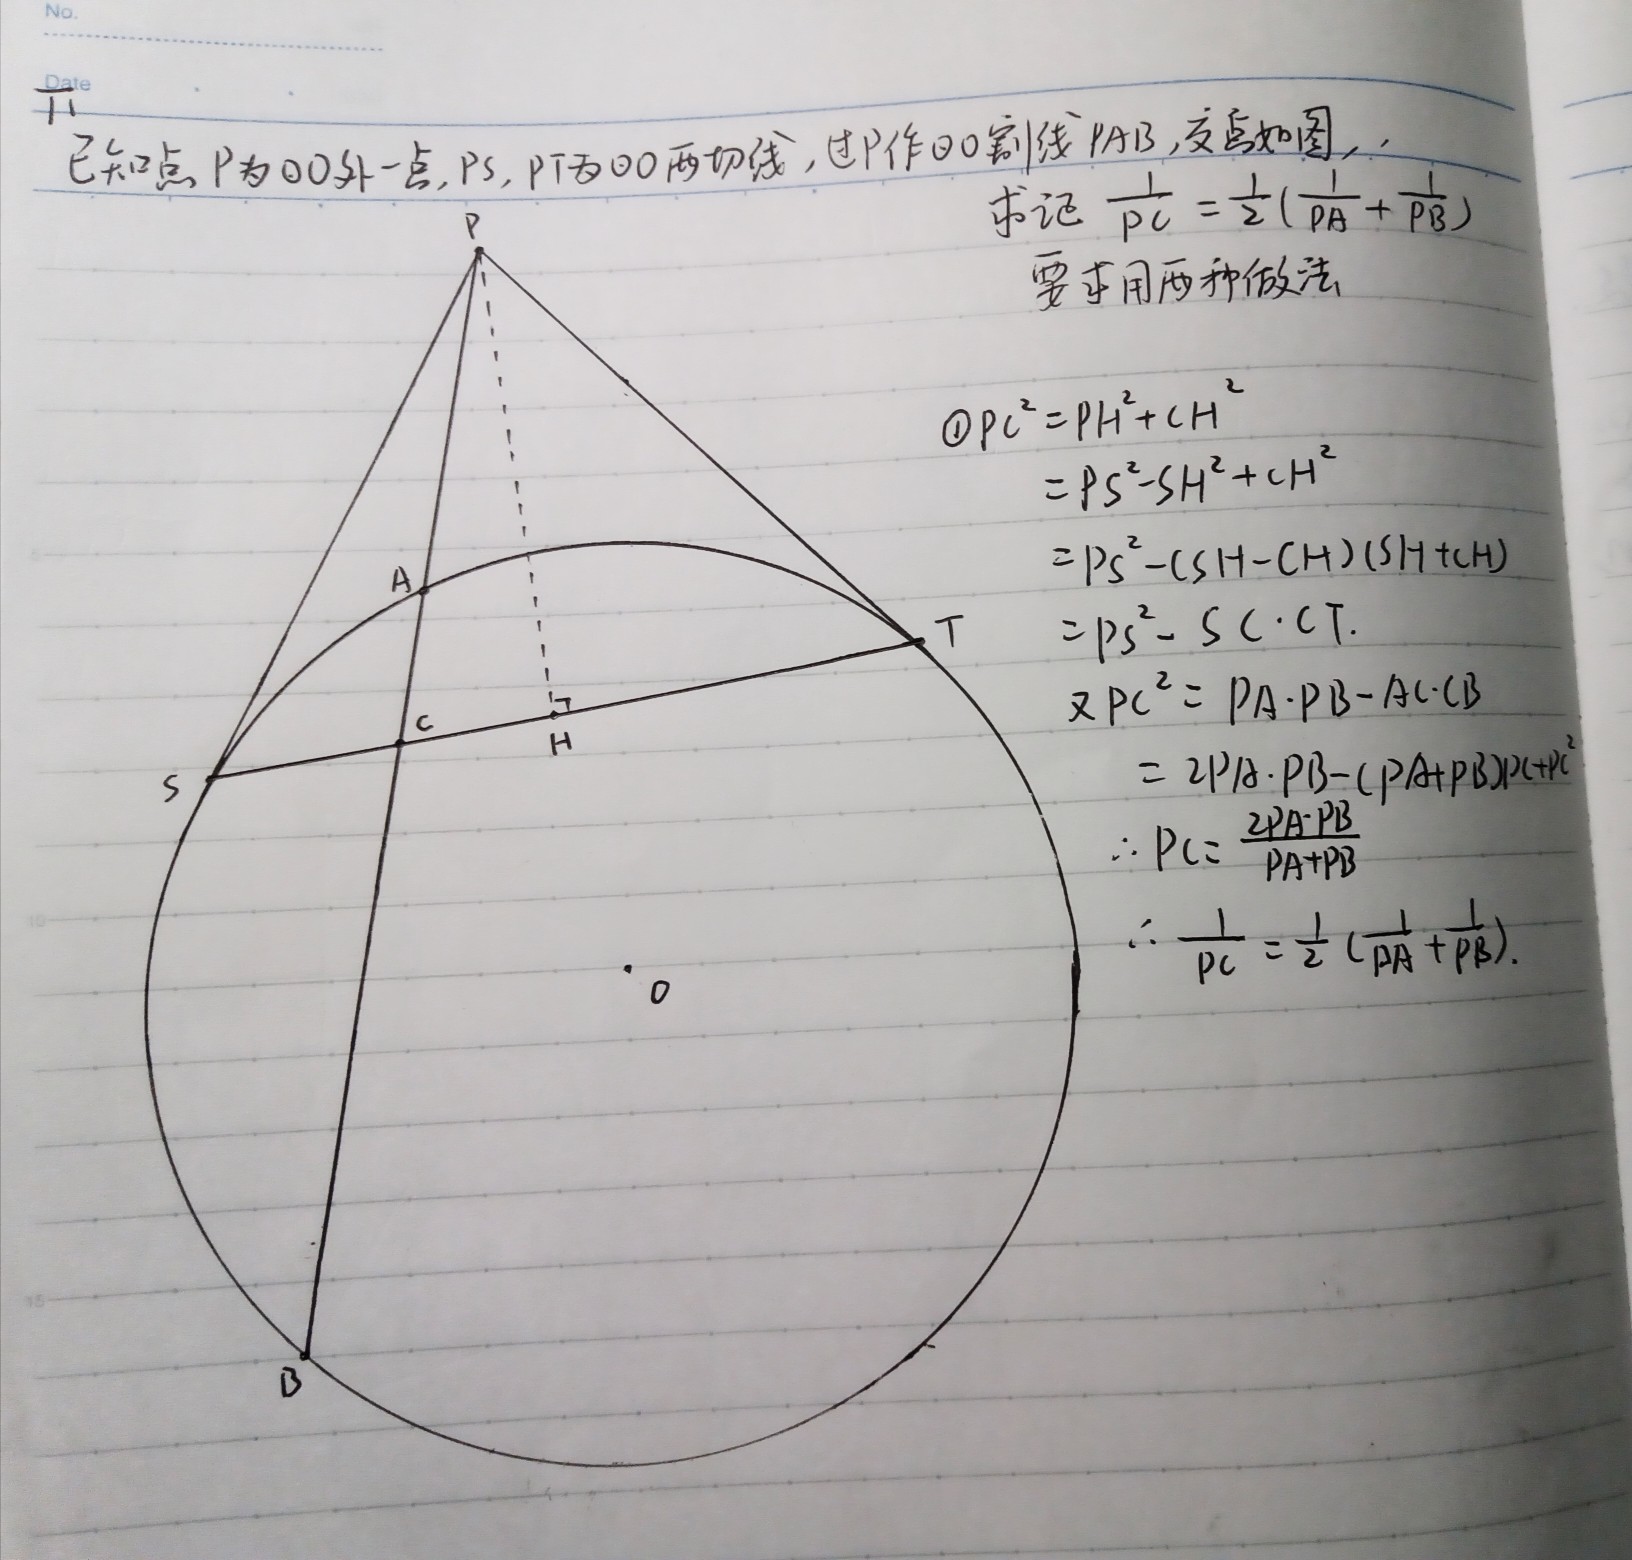 No.
Date
T1
已知点P为⊙O外一点,PS,PT为⊙O两切线,过P作⊙O割线PAB,交点如图,.
求证 1/PC = 1/2(1/PA + 1/PB)
要求用两种做法
P
①PC²=PH²+CH²
=PS²-SH²+CH²
=PS²-(SH-CH)(SH+CH)
A
T
=PS²-SC·CT.
又PC²=PA·PB-AC·CB
C
H
S
=2PA·PB-(PA+PB)PC+PC²
∴PC=2PA·PB/PA+PB
∴ 1/PC = 1/2 (1/PA + 1/PB).
5
10
O
15
B